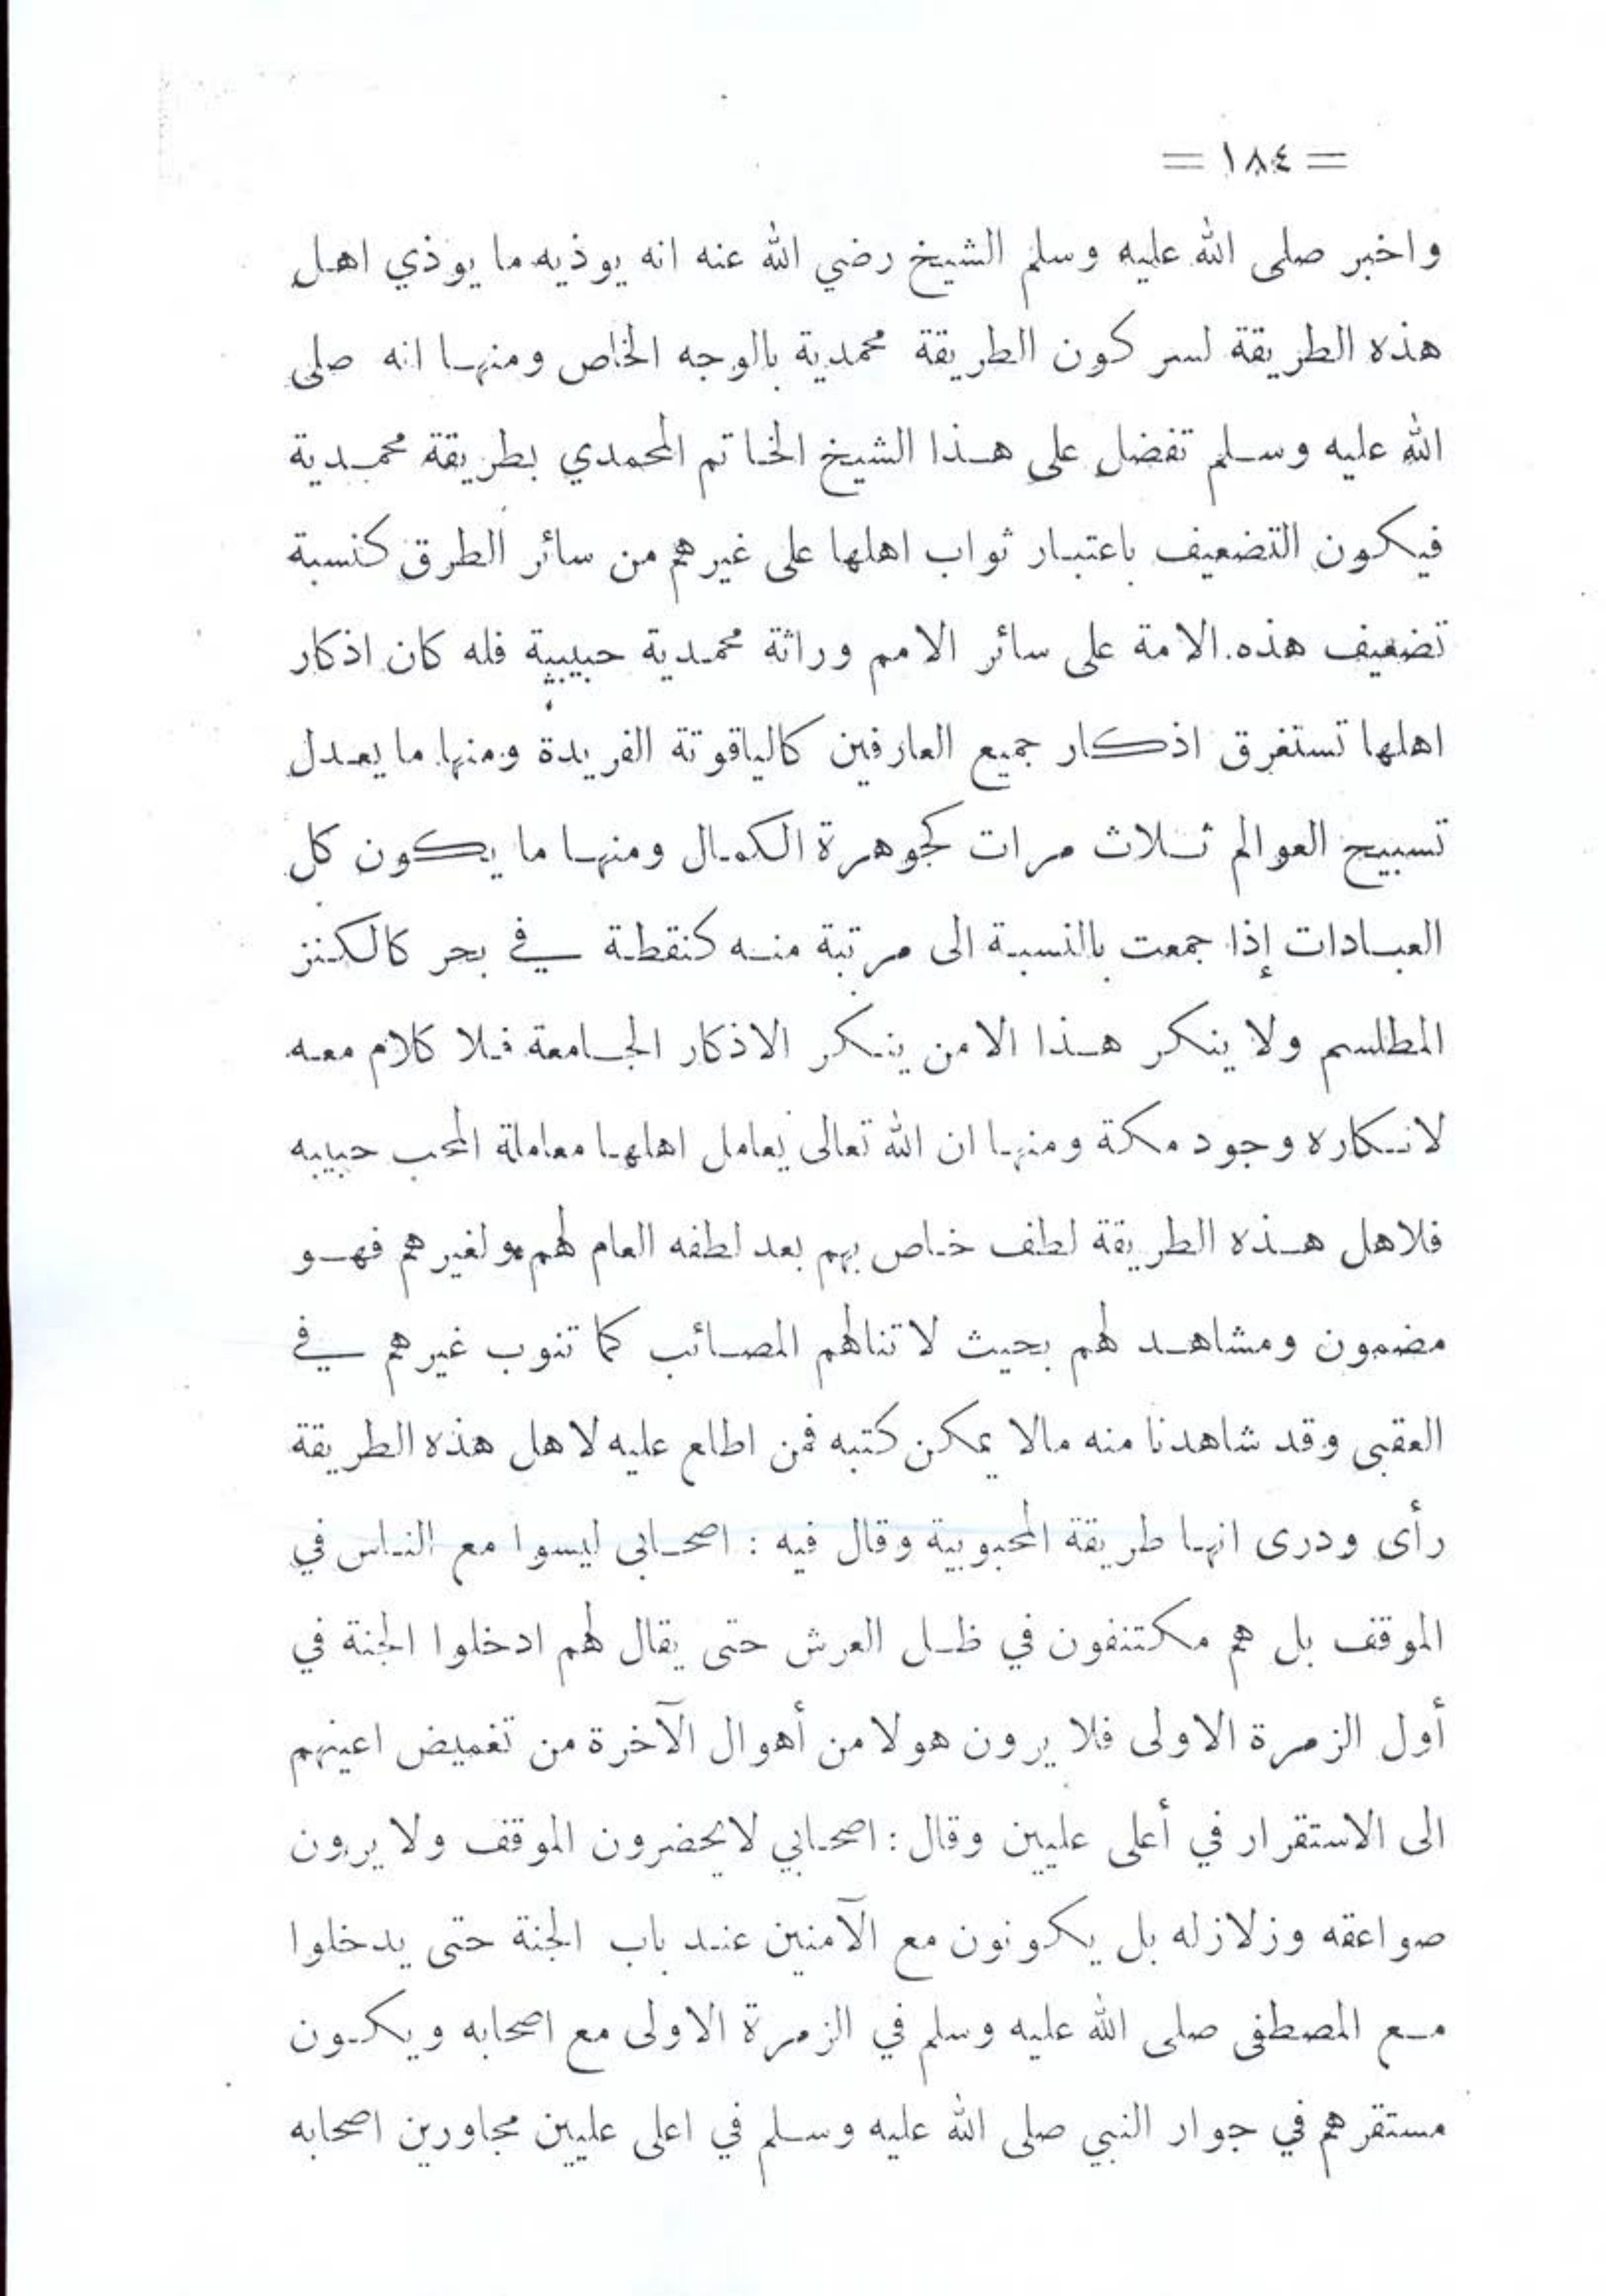 = ١٨٤ =
واخبر صلى الله عليه وسلم الشيخ رضي الله عنه انه يوذيه ما يوذي اهل
هذه الطريقة لسر كون الطريقة محمدية بالوجه الخاص ومنها انه صلى
الله عليه وسلم تفضل على هذا الشيخ الخاتم المحمدي بطريقة محمدية
فيكون التضعيف باعتبار ثواب اهلها على غيرهم من سائر الطرق كنسبة
تضعيف هذه الامة على سائر الامم وراثة محمدية حبيبية فله كان اذكار
اهلها تستغرق اذكار جميع العارفين كالياقوتة الفريدة ومنها ما يعدل
تسبيح العوالم ثلاث مرات كجوهرة الكمال ومنها ما يكون كل
العبادات إذا جمعت بالنسبة الى مرتبة منه كنقطة في بحر كالكنز
المطلسم ولا ينكر هذا الامن ينكر الاذكار الجامعة فلا كلام معه
لانكاره وجود مكة ومنها ان الله تعالى يعامل اهلها معاملة المحب حبيبه
فلاهل هذه الطريقة لطف خاص بهم بعد لطفه العام لهم ولغيرهم فهو
مضمون ومشاهد لهم بحيث لا تنالهم المصائب كما تنوب غيرهم في
العقبى وقد شاهدنا منه مالا يمكن كتبه فمن اطلع عليه لاهل هذه الطريقة
رأى ودرى انها طريقة المحبوبية وقال فيه : اصحابى ليسوا مع الناس في
الموقف بل هم مكتنفون في ظل العرش حتى يقال لهم ادخلوا الجنة في
أول الزمرة الاولى فلا يرون هولا من أهوال الآخرة من تغميض اعينهم
الى الاستقرار في أعلى عليين وقال : اصحابي لا يحضرون الموقف ولا يرون
صواعقه وزلازله بل يكونون مع الآمنين عند باب الجنة حتى يدخلوا
مع المصطفى صلى الله عليه وسلم في الزمرة الاولى مع اصحابه ويكون
مستقرهم في جوار النبي صلى الله عليه وسلم في اعلى عليين مجاورين اصحابه